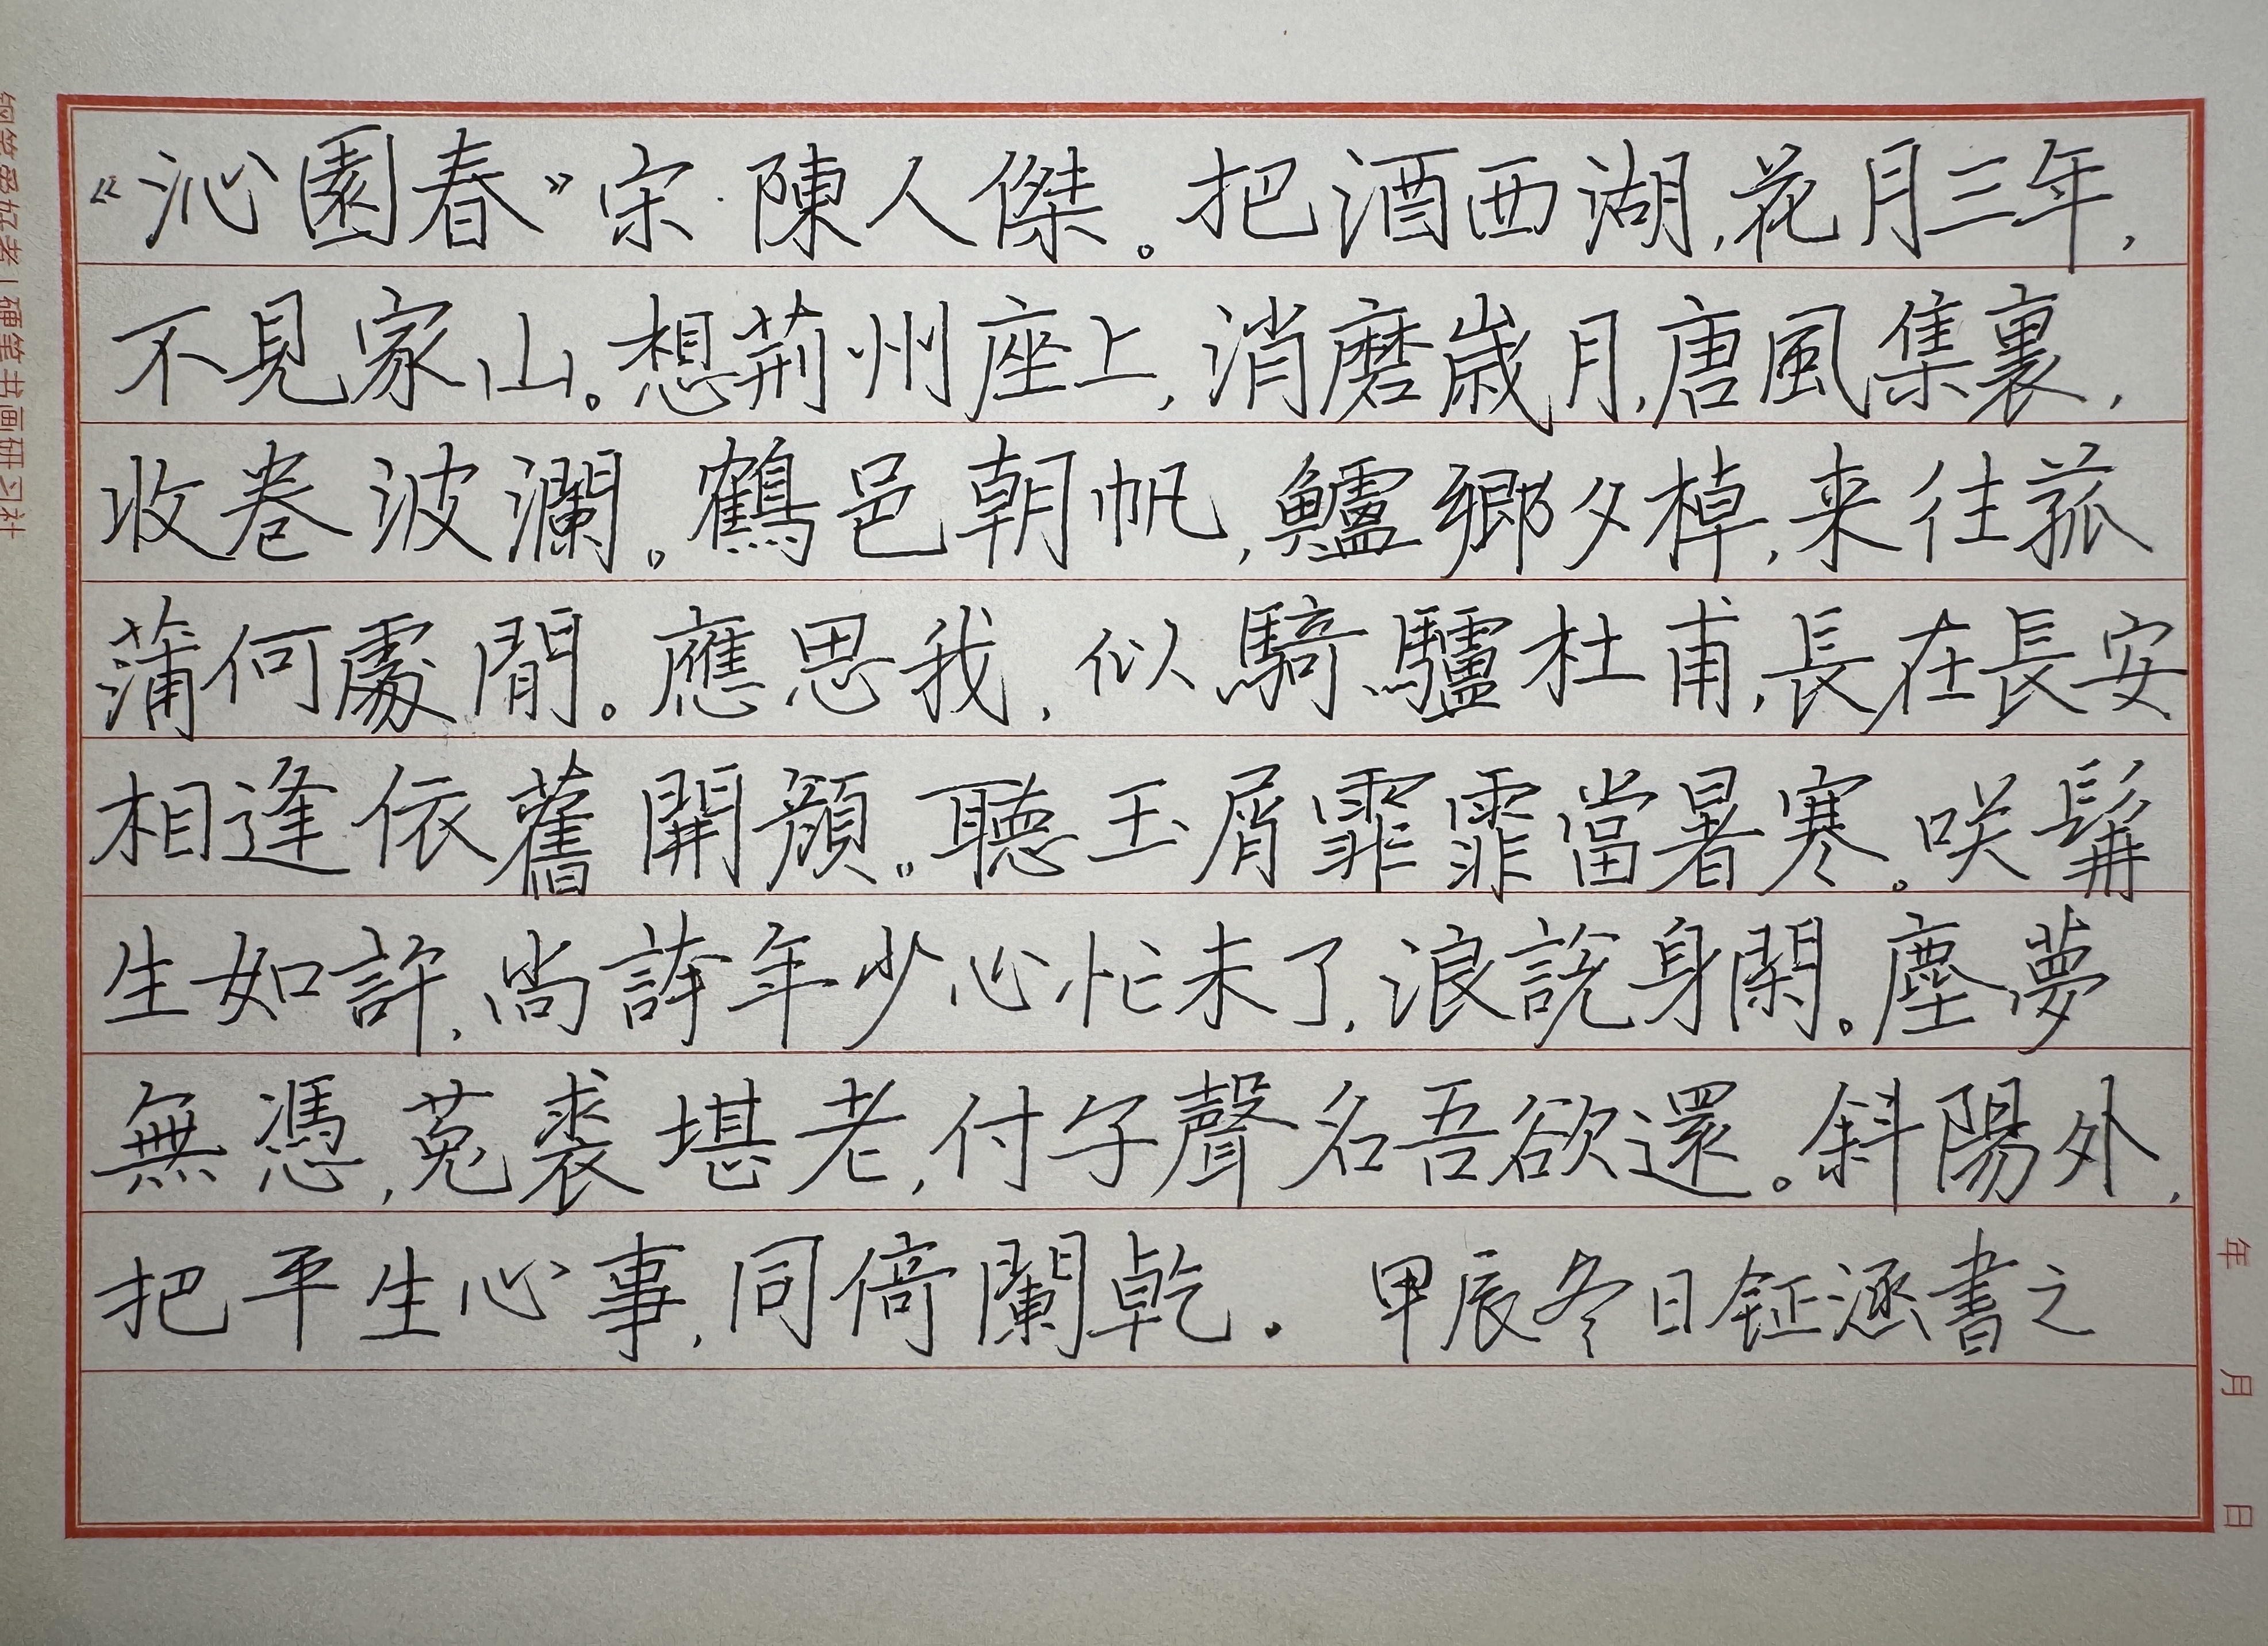 《沁園春》宋·陳人傑。把酒西湖,花月三年,
不見家山。想荊州座上,消磨歲月,唐風集裏,
收卷波瀾。鶴邑朝帆,鱸鄉夕棹,来往菰
蒲何處間。應思我,似騎驢杜甫,長在長安
相逢依舊開顏。聽玉屑霏霏當暑寒。咲鬅
生如許,尚誇年少心忙未了,浪說身閑。塵夢
無憑,菟裘堪老,付子聲名吾欲還。斜陽外,
把平生心事,同倚闌乾。 甲辰冬日钲涵書之
钢笔爱好者|硬笔书画研习社
年 月 日